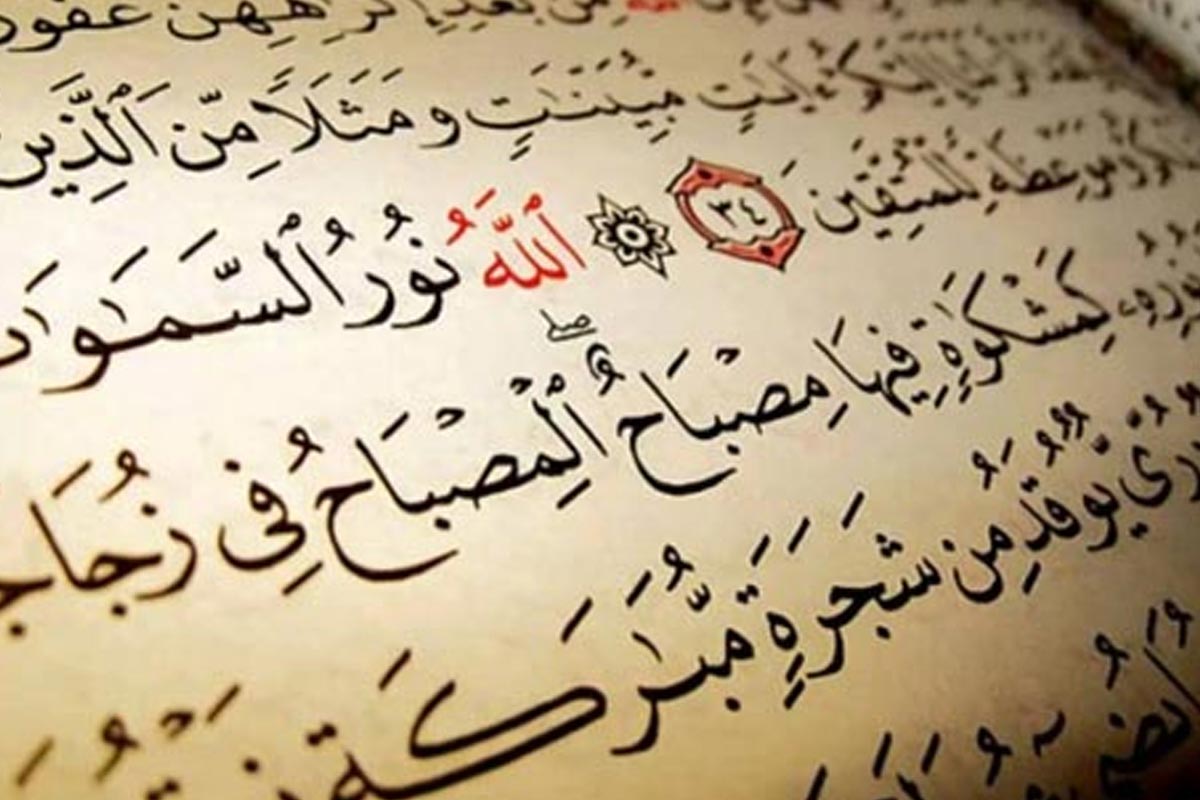 مِنۢ بَعْدِ إِكْرَٰهِهِنَّ غَفُورٌ
إِلَيْكُمْ ءَايَٰتٍ مُّبَيِّنَٰتٍ وَمَثَلًا مِّنَ ٱلَّذِينَ
وَمَوْعِظَةً لِّلْمُتَّقِينَ ٣٤ ۞ ٱللَّهُ نُورُ ٱلسَّمَٰوَٰتِ
نُورِهِۦ كَمِشْكَوٰةٍ فِيهَا مِصْبَاحٌ ۖ ٱلْمِصْبَاحُ فِى زُجَاجَ
دُرِّىٌّ يُوقَدُ مِن شَجَرَةٍ مُّبَٰرَكَةٍ